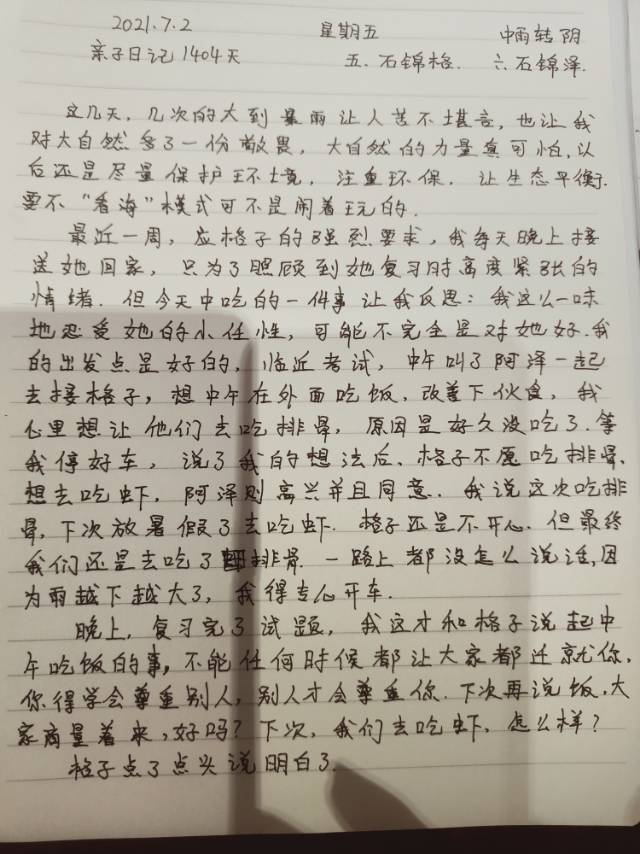 2021.7.2 星期五 中雨转阴
亲子日记1404天 五.石锦格. 六石锦泽.
这几天,几次的大到暴雨让人苦不堪言,也让我
对大自然多了一份敬畏,大自然的力量真可怕,以
后还是尽量保护环境,注重环保,让生态平衡.
要不“看海”模式可不是闹着玩的.
最近一周,应格子的强烈要求,我每天晚上接
送她回家,只为了照顾到她复习时高度紧张的
情绪.但今天中吃的一件事让我反思:我这么一味
地恩爱她的小任性,可能不完全是对她好.我
的出发点是好的,临近考试,中午叫了阿泽一起
去接格子,想中午在外面吃饭,改善下伙食,我
心里想让他们去吃排骨,原因是好久没吃了.等
我停好车,说了我的想法后、格子不愿吃排骨、
想去吃虾,阿泽则高兴并且同意.我说这次吃排
骨,下次放暑假了去吃虾.格子还是不开心.但最终
我们还是去吃了排骨.一路上都没怎么说话,因
为雨越下越大了,我得专心开车.
晚上,复习完了试题,我这才和格子说起中
午吃饭的事,不能任何时候都让大家都迁就你,
你得学会尊重别人,别人才会尊重你.下次再说饭,大
家商量着来,好吗?下次,我们去吃虾,怎么样?
格子点了点头说明白了.